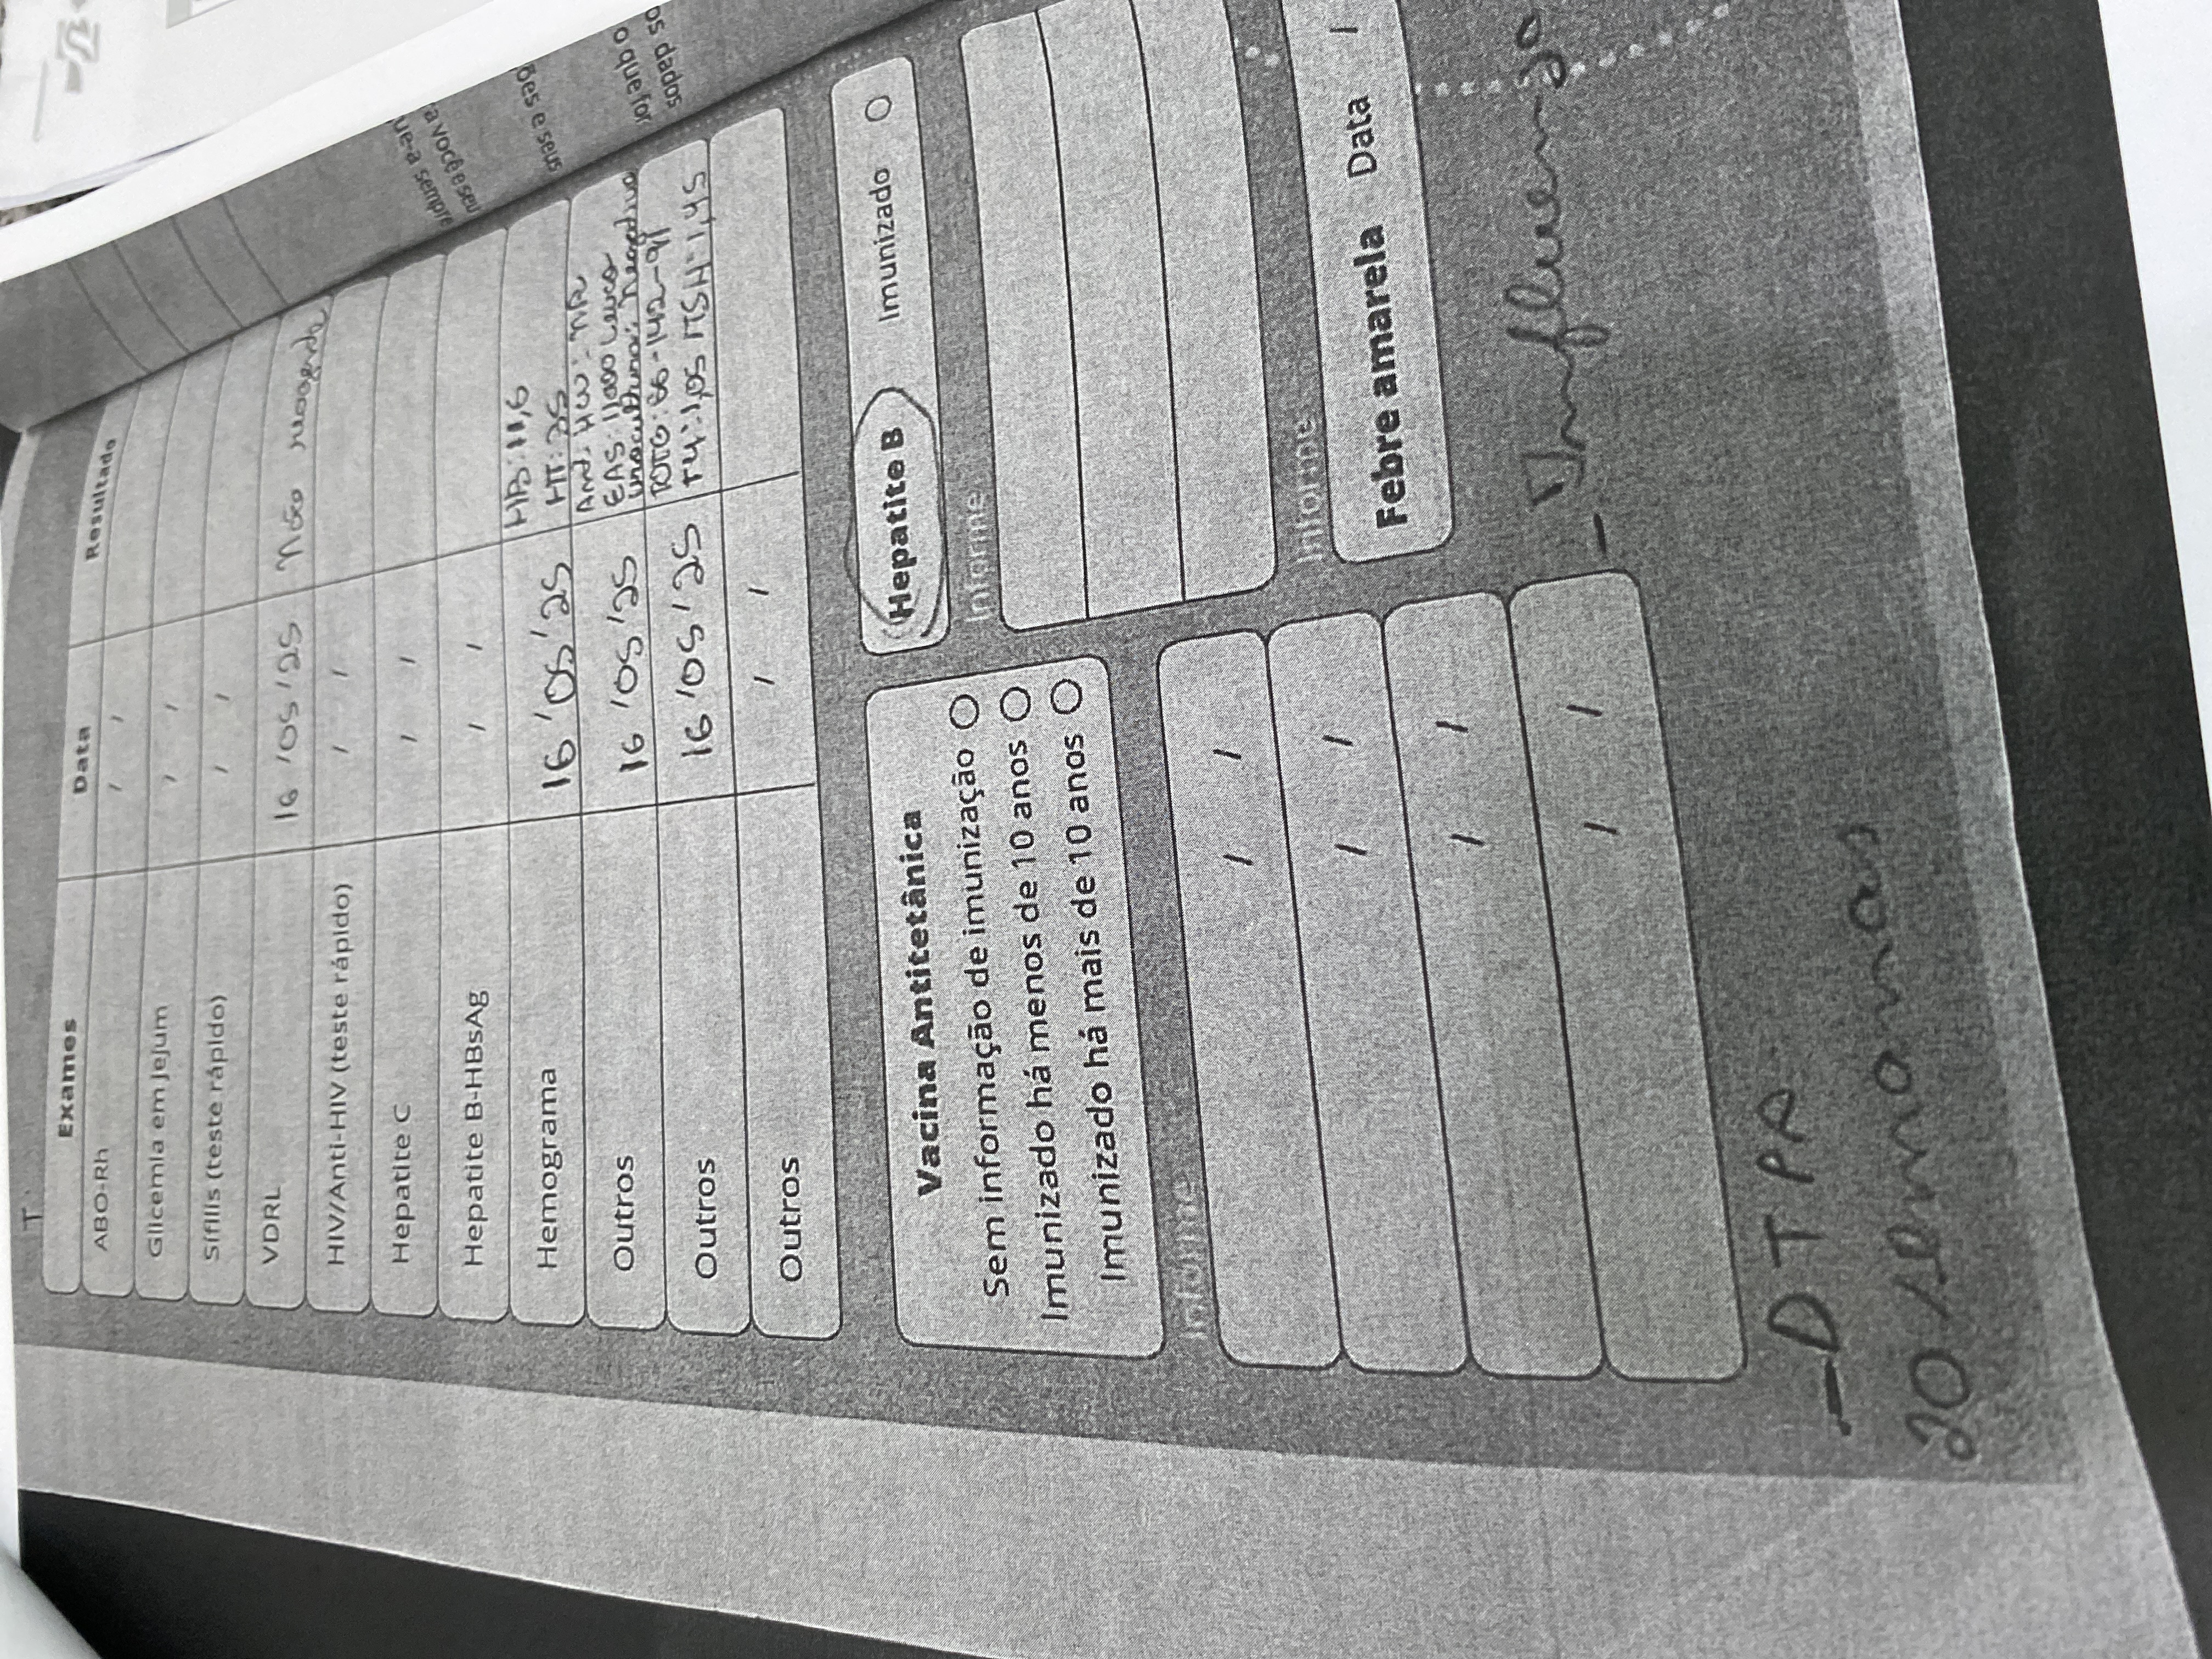 T.
Exames Data Resultado
ABO-Rh / /
Glicemia em jejum / /
Sífilis (teste rápido) / /
VDRL 16/05/25 Não reagente
HIV/Anti-HIV (teste rápido) / /
Hepatite C / /
Hepatite B-HBsAg / /
Hemograma 16/05/25 HB: 11,6
HT: 35
Outros 16/05/25
EAS: 11000 leuco
urocultura: negativa
Outros 16/05/25 TOTG: 86-142-91
T4: 1,05 TSH: 1,45
Outros / /
ue-a sempre
ra você e seu
ões e seus
o que for
os dados
Vacina Antitetânica
Sem informação de imunização
Imunizado há menos de 10 anos
Imunizado há mais de 10 anos
Informe
/ /
/ /
/ /
/ /
Hepatite B Imunizado
Informe
Informe
Febre amarela Data /
- DTPA
20 semanas
- Influenza